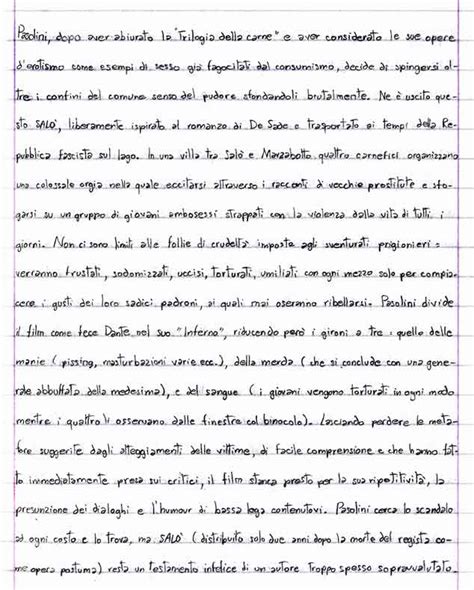 Pasolini, dopo aver abiurato la "Trilogia della carne" e aver considerato le sue opere
d'erotismo come esempi di sesso già fagocitati dal consumismo, decide di spingersi ol-
tre i confini del comune senso del pudore sfondandoli brutalmente. Ne è uscito que-
sto SALÒ, liberamente ispirato al romanzo di De Sade e trasportato ai tempi della Re-
pubblica fascista sul lago. In una villa tra Salò e Marzabotto quattro carnefici organizzano
una colossale orgia nella quale eccitarsi attraverso i racconti di vecchie prostitute e sfo-
garsi su un gruppo di giovani ambosessi strappati con la violenza dalla vita di tutti i
giorni. Non ci sono limiti alle follie di crudeltà imposte agli sventurati prigionieri:
verranno frustati, sodomizzati, uccisi, torturati, umiliati con ogni mezzo solo per compia-
cere i gusti dei loro sadici padroni, ai quali mai oseranno ribellarsi. Pasolini divide
il film come fece Dante nel suo "Inferno", riducendo però i gironi a tre: quello delle
manie (pissing, masturbazioni varie ecc.), della merda (che si conclude con una gene-
rale abbuffata della medesima), e del sangue (i giovani vengono torturati in ogni modo
mentre i quattro li osservano dalle finestre col binocolo). Lasciando perdere le meta-
fore suggerite dagli atteggiamenti delle vittime, di facile comprensione e che hanno fat-
to immediatamente presa sui critici, il film stanca presto per la sua ripetitività, la
presunzione dei dialoghi e l'humour di bassa lega contenutovi. Pasolini cerca lo scandalo
ad ogni costo e lo trova, ma SALÒ (distribuito solo due anni dopo la morte del regista co-
me opera postuma) resta un testamento infelice di un autore troppo spesso sopravvalutato.